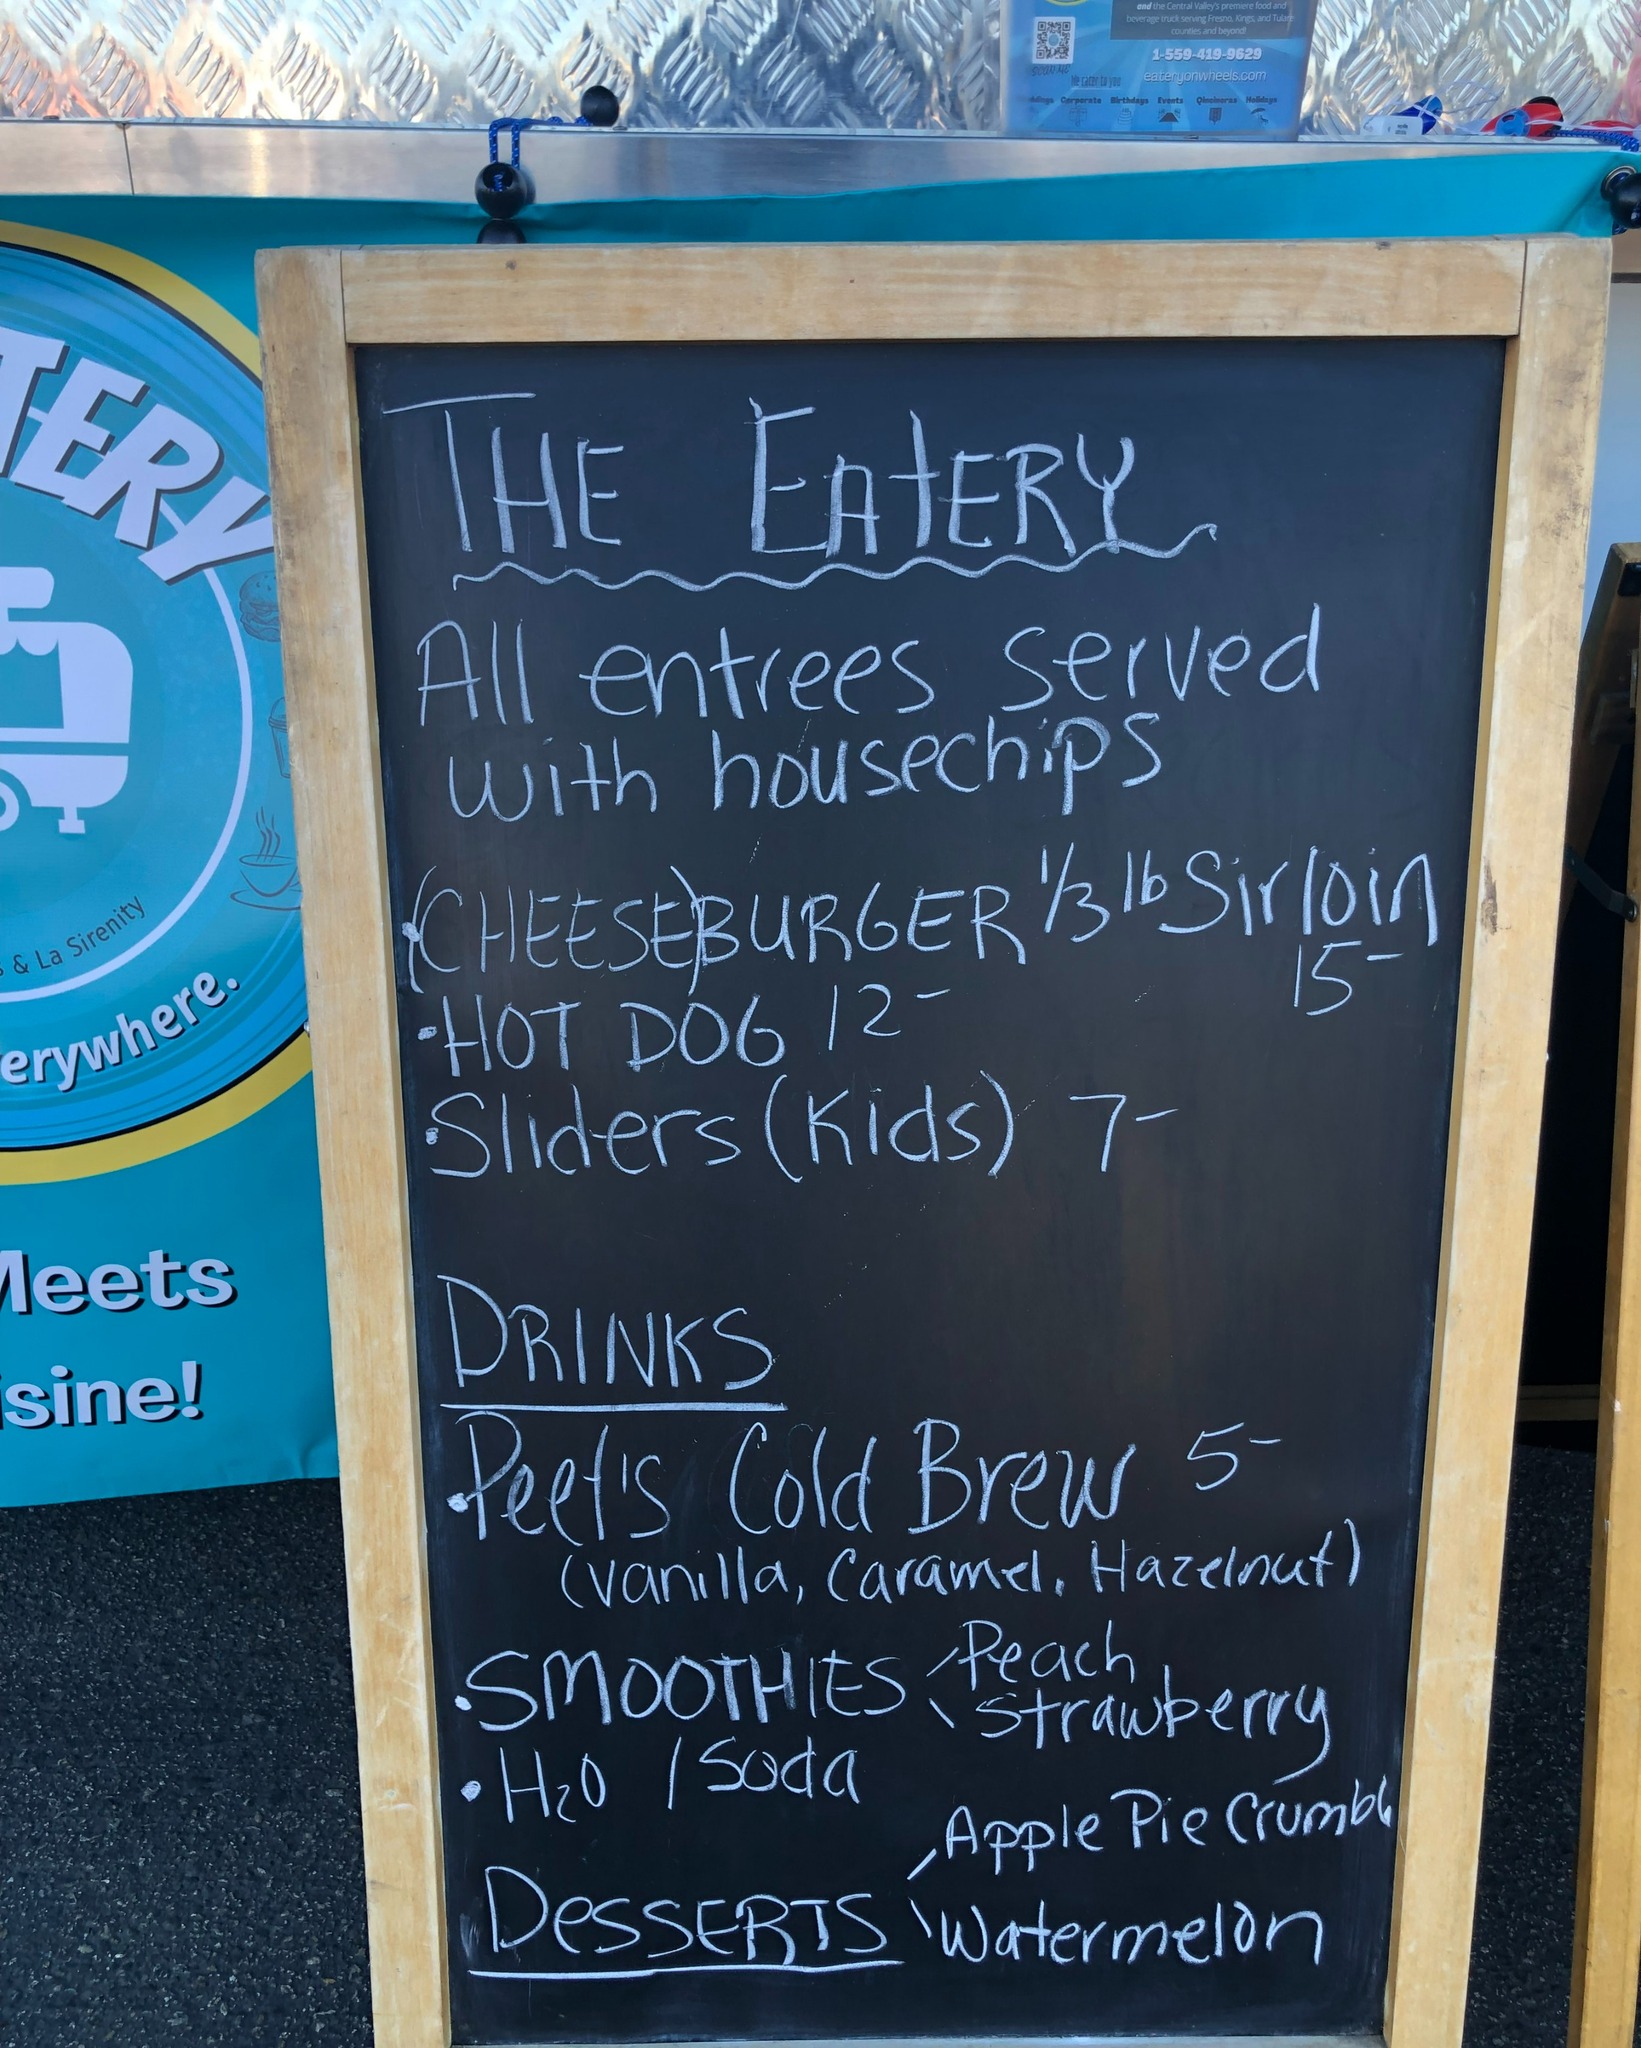 and the Central Valley's premiere food and
beverage truck serving Fresno, Kings, and Tulare
counties and beyond!
1-559-419-9629
eateryonwheels.com
We cater to you
Corporate Birthdays Events Qincineras Holidays
TERY
& La Sirenity
erywhere.
Meets
isine!
THE EATERY
All entrees served
with housechips
(CHEESE)BURGER 1/3 lb Sirloin
15-
•HOT DOG 12-
•Sliders (Kids) 7-
DRINKS
•Peet's Cold Brew 5-
(vanilla, Caramel, Hazelnut)
•SMOOTHIES Peach
Strawberry
•H2O / Soda
Apple Pie Crumble
DESSERTS Watermelon